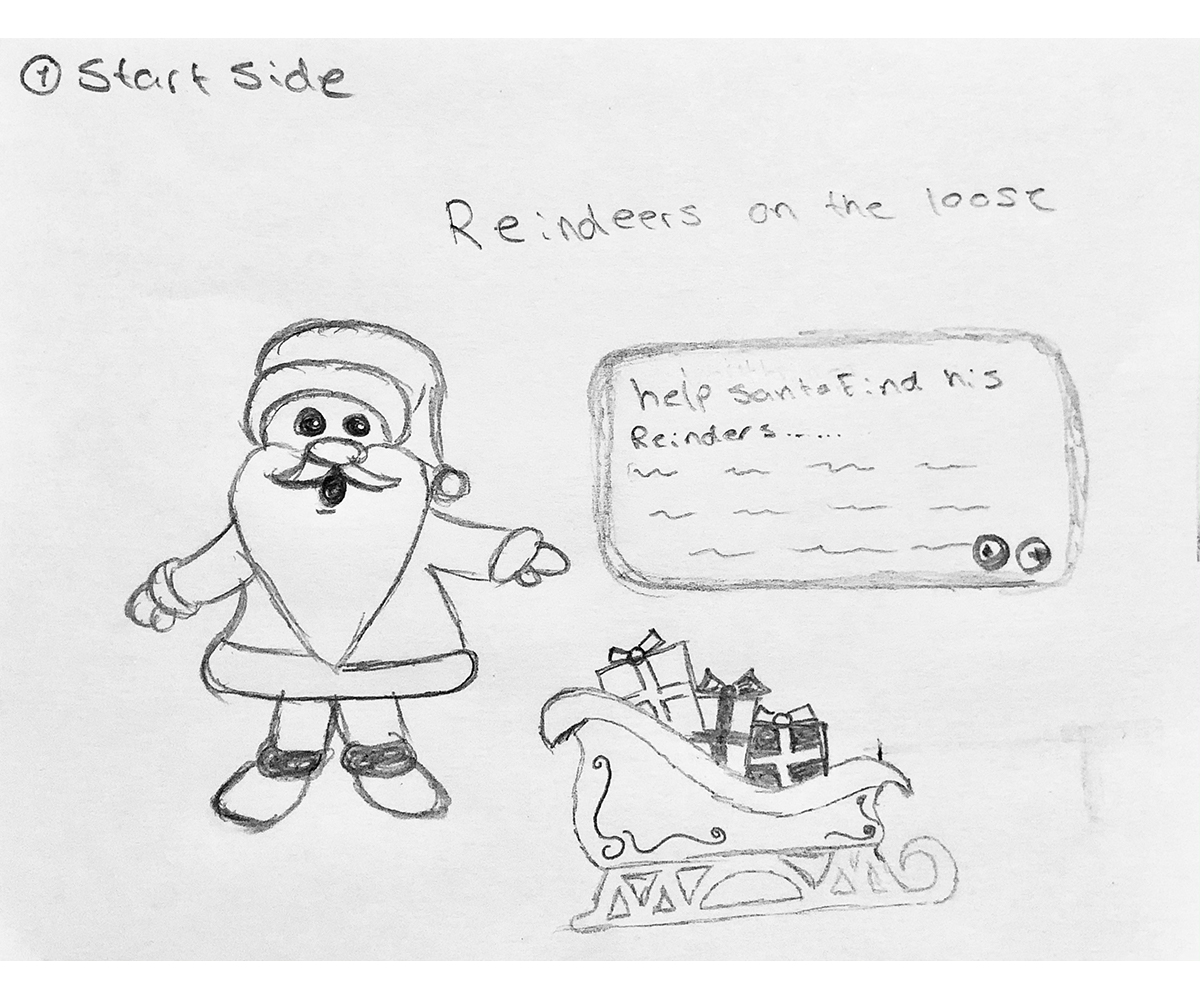 ① Start Side
Reindeers on the loose
help santa Find his
Reinders......